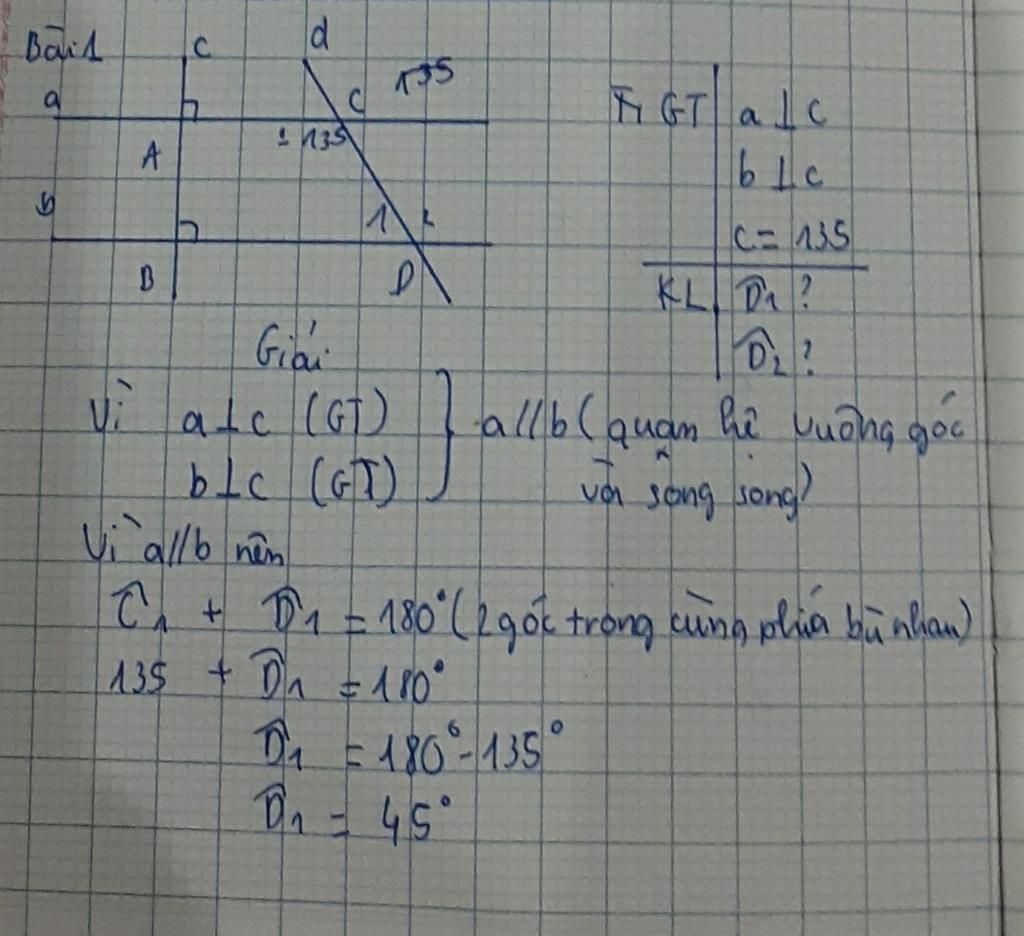 Bài 1
c
d
135
a
C
1 135
A
b
1 2
B
D
GT a ⊥ c
b ⊥ c
C = 135
KL D̂1 ?
D̂2 ?
Giải
Vì a ⊥ c (GT) } a//b ( quan hệ vuông góc
b ⊥ c (GT) và song song)
Vì a//b nên
Ĉ1 + D̂1 = 180° (2 góc trong cùng phía bù nhau)
135 + D̂1 = 180°
D̂1 = 180° - 135°
D̂1 = 45°